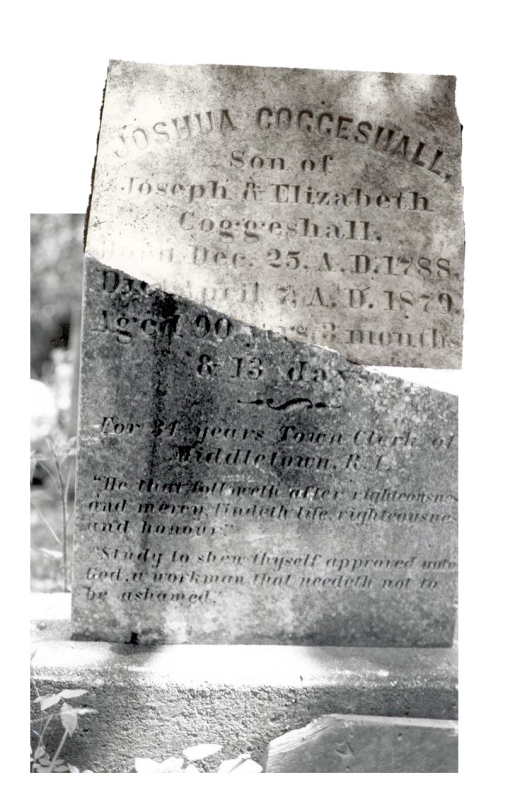 JOSHUA COGGESHALL,
Son of
Joseph & Elizabeth
Coggeshall.
Born Dec. 25. A.D. 1788.
Died April 7, A.D. 1879,
Aged 90 yrs 3 months
& 13 days.
For 34 years Town Clerk of
Middletown, R.I.
"He that followeth after righteousnes
and mercy, findeth life, righteousnes
and honour."
"Study to shew thyself approved unto
God, a workman that needeth not to
be ashamed."